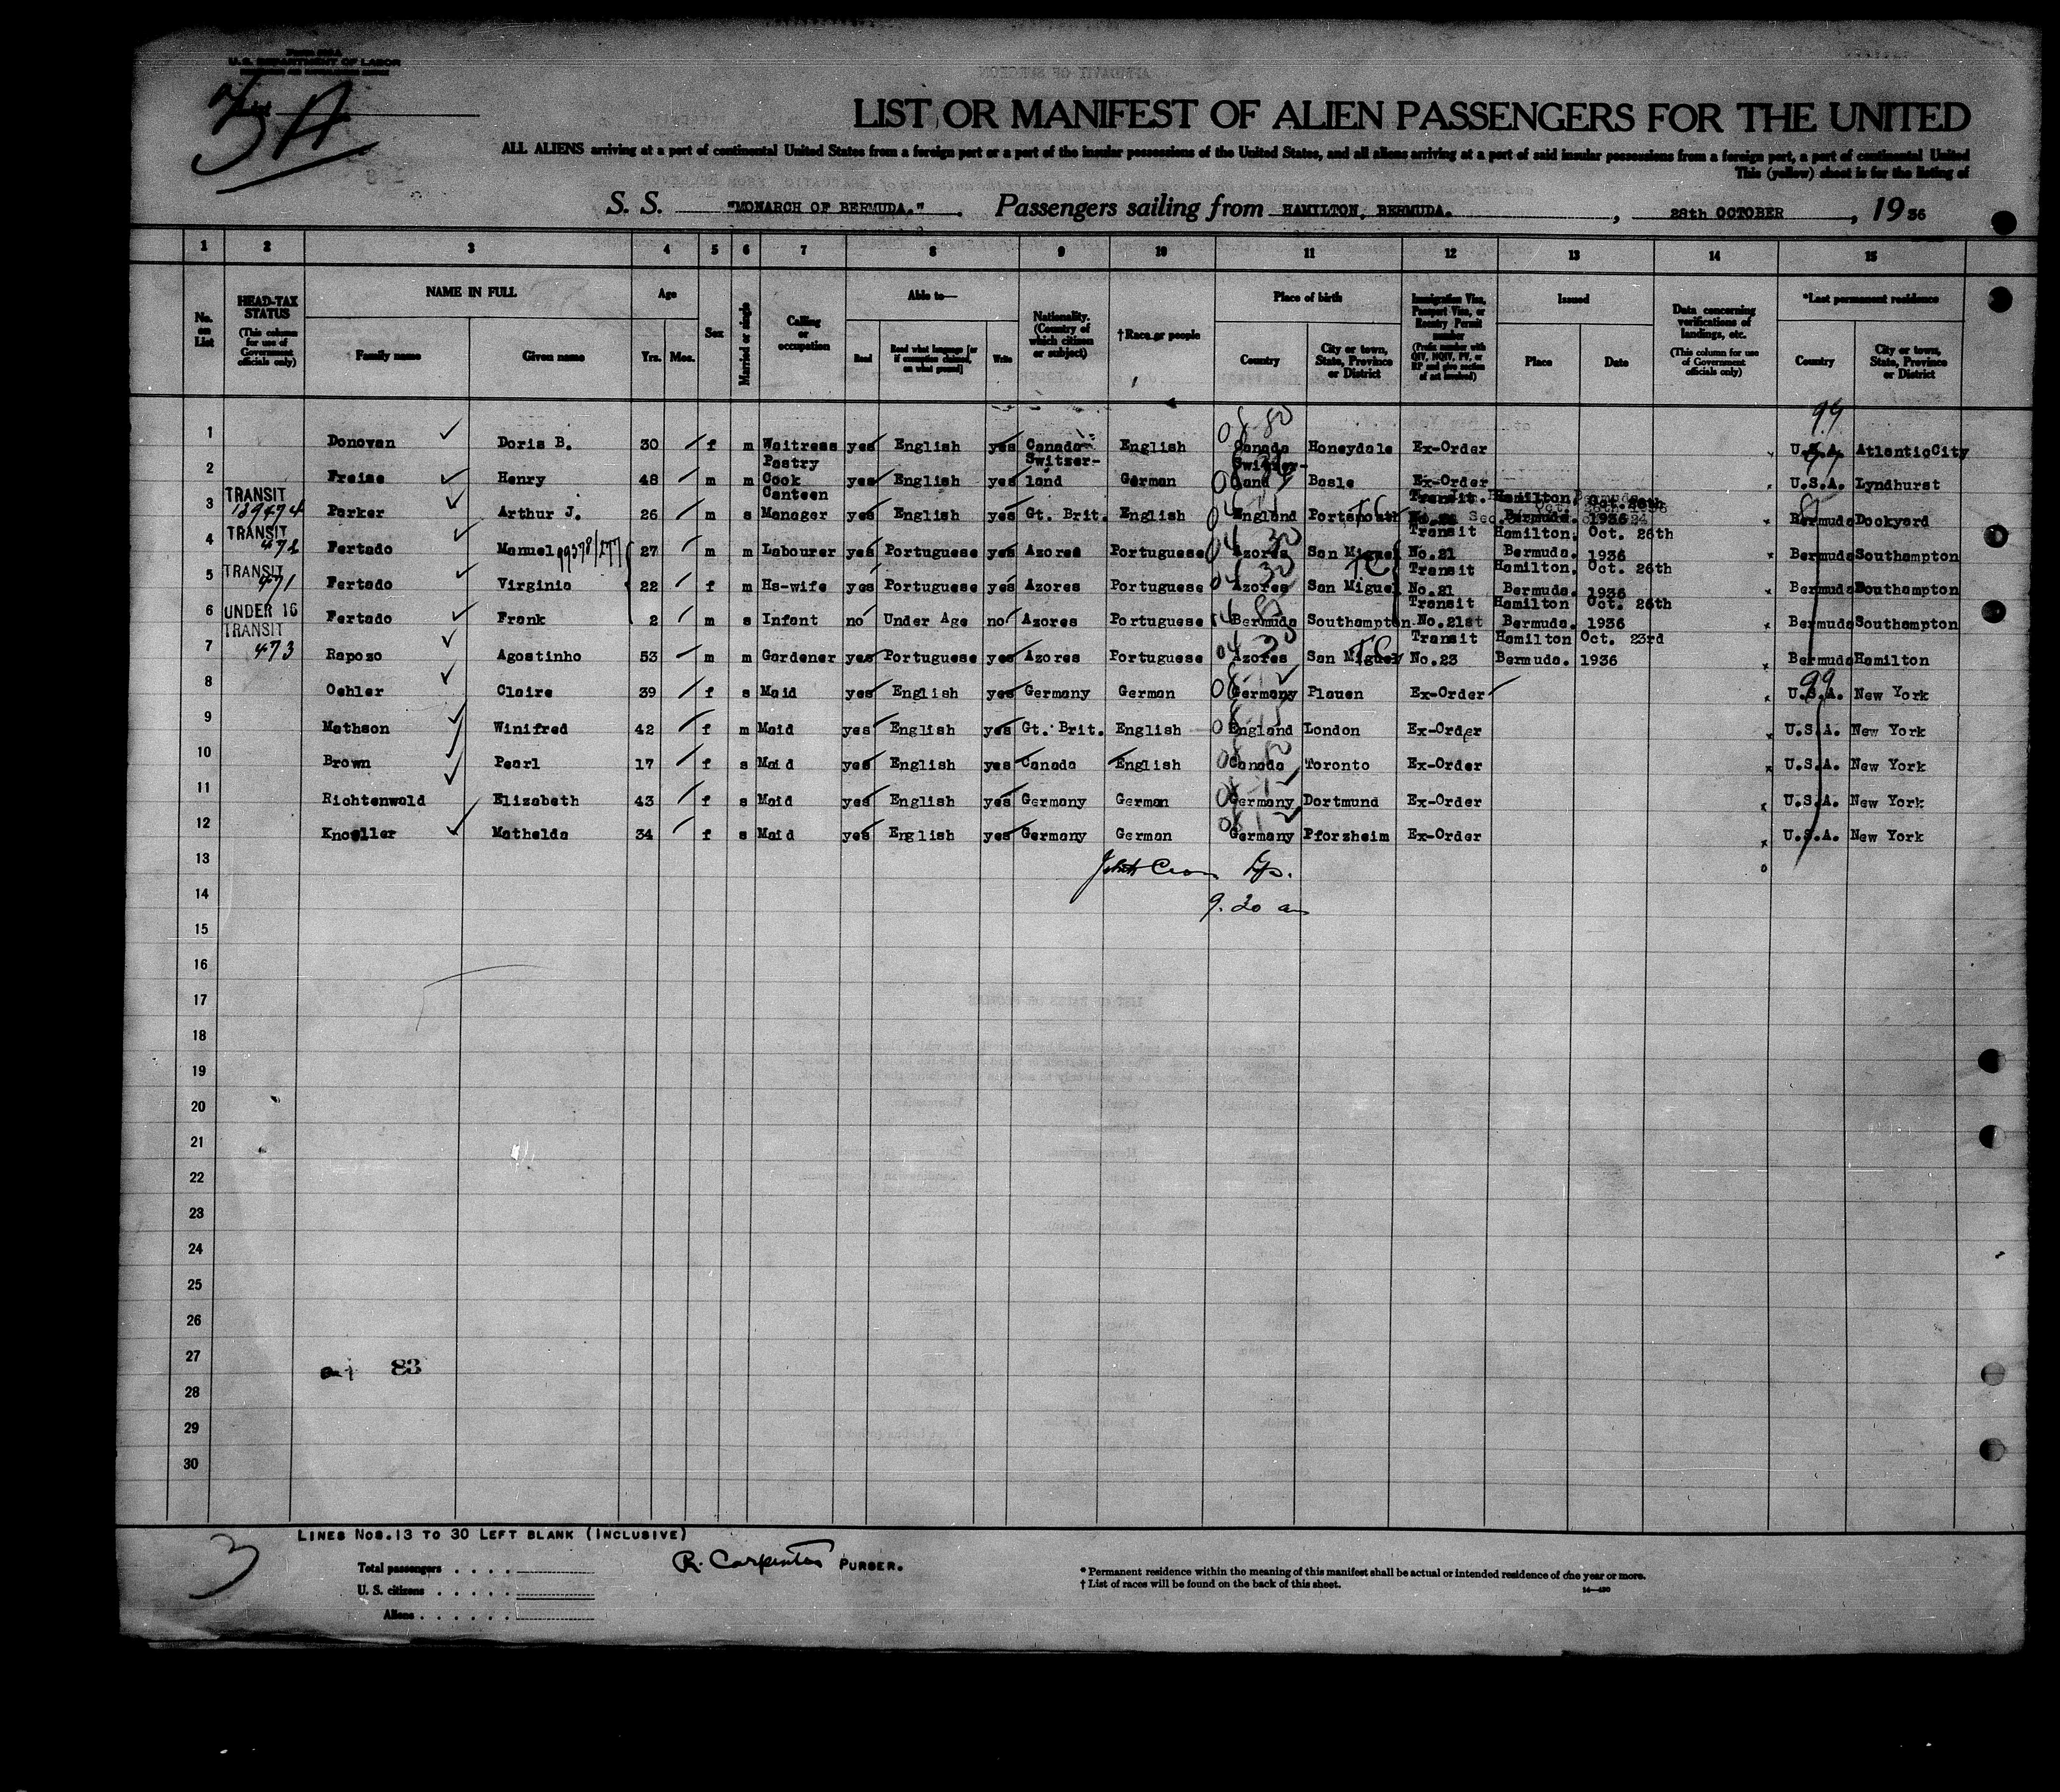 U.S. DEPARTMENT OF LABOR
3A
LIST OR MANIFEST OF ALIEN PASSENGERS FOR THE UNITED
ALL ALIENS arriving at a port of continental United States from a foreign port or a port of the insular possessions of the United States, and all aliens arriving at a port of said insular possessions from a foreign port, a port of continental United
This (yellow) sheet is for the listing of
S. S. "MONARCH OF BERMUDA." Passengers sailing from HAMILTON, BERMUDA. , 28th OCTOBER , 1936
1 2 3 4 5 6 7 8 9 10 11 12 13 14 15
No. on List
HEAD-TAX STATUS (This column for use of Government officials only)
NAME IN FULL Family name Given name
Age Yrs. Mos.
Sex
Married or single
Calling or occupation
Able to— Read Read what language [or if exemption claimed, on what ground] Write
Nationality. (Country of which citizen or subject)
†Race or people
Place of birth Country City or town, State, Province or District
Immigration Visa, Passport Visa, or Reentry Permit number (Prefix number with QIV, NQIV, PV, or RP and give section of act involved)
Issued Place Date
Data concerning verifications of landings, etc. (This column for use of Government officials only)
*Last permanent residence Country City or town, State, Province or District
1 Donovan Doris B. 30 f m Waitress yes English yes Canada English Canada Honeydale Ex-Order U.S.A. AtlanticCity
2 Freise Henry 48 m m Pastry Cook yes English yes Switzer-land German Switzer-land Basle Ex-Order U.S.A. Lyndhurst
3 TRANSIT 139474 Parker Arthur J. 26 m s Canteen Manager yes English yes Gt. Brit. English England Portsmouth Transit Hamilton, Bermuda. 1936 Bermuda Dockyard
4 TRANSIT 472 Fertado Manuel 99378/277 27 m m Labourer yes Portuguese yes Azores Portuguese Azores San Miguel Transit No.21 Hamilton, Bermuda. Oct. 26th 1936 Bermuda Southampton
5 TRANSIT 471 Fertado Virginia 22 f m Hs-wife yes Portuguese yes Azores Portuguese Azores San Miguel Transit No.21 Hamilton, Bermuda. Oct. 26th 1936 Bermuda Southampton
6 UNDER 16 Fertado Frank 2 m s Infant no Under Age no Azores Portuguese Bermuda Southampton Transit No.21st Hamilton Bermuda. Oct. 26th 1936 Bermuda Southampton
7 TRANSIT 473 Raposo Agostinho 53 m m Gardener yes Portuguese yes Azores Portuguese Azores San Miguel Transit No.23 Hamilton Bermuda. Oct. 23rd 1936 Bermuda Hamilton
8 Oehler Claire 39 f s Maid yes English yes Germany German Germany Plauen Ex-Order U.S.A. New York
9 Mathson Winifred 42 f m Maid yes English yes Gt. Brit. English England London Ex-Order U.S.A. New York
10 Brown Pearl 17 f s Maid yes English yes Canada English Canada Toronto Ex-Order U.S.A. New York
11 Richtenwald Elizabeth 43 f s Maid yes English yes Germany German Germany Dortmund Ex-Order U.S.A. New York
12 Knoeller Mathelda 34 f s Maid yes English yes Germany German Germany Pforzheim Ex-Order U.S.A. New York
13
14 9.20 am
15
16
17
18
19
20
21
22
23
24
25
26
27 83
28
29
30
LINES NOS.13 TO 30 LEFT BLANK (INCLUSIVE)
3
R. Carpenter PURSER.
Total passengers
U. S. citizens
Aliens
* Permanent residence within the meaning of this manifest shall be actual or intended residence of one year or more.
† List of races will be found on the back of this sheet.